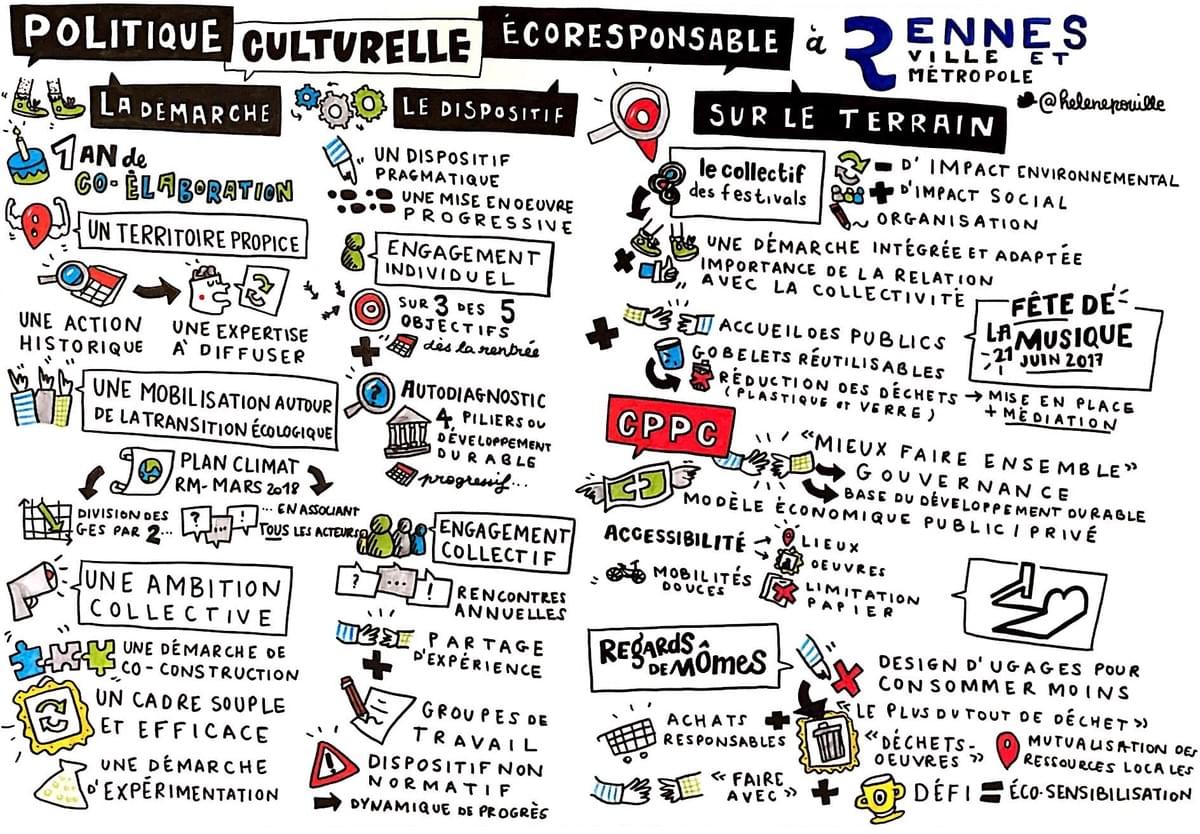 POLITIQUE CULTURELLE ÉCORESPONSABLE à RENNES
VILLE ET
MÉTROPOLE
@helenepouille
LA DÉMARCHE
1 AN de
CO-ÉLABORATION
UN TERRITOIRE PROPICE
UNE ACTION
HISTORIQUE
UNE EXPERTISE
À DIFFUSER
UNE MOBILISATION AUTOUR
DE LA TRANSITION ÉCOLOGIQUE
PLAN CLIMAT
RM- MARS 2018
DIVISION DES
GES PAR 2...
? ... !
... EN ASSOCIANT
TOUS LES ACTEURS
UNE AMBITION
COLLECTIVE
UNE DÉMARCHE DE
CO-CONSTRUCTION
UN CADRE SOUPLE
ET EFFICACE
UNE DÉMARCHE
D'EXPÉRIMENTATION
LE DISPOSITIF
UN DISPOSITIF
PRAGMATIQUE
UNE MISE EN OEUVRE
PROGRESSIVE
ENGAGEMENT
INDIVIDUEL
SUR 3 DES 5
OBJECTIFS
dès la rentrée
?
AUTODIAGNOSTIC
4 PILIERS DU
DÉVELOPPEMENT
DURABLE
progressif...
ENGAGEMENT
COLLECTIF
? ... !
RENCONTRES
ANNUELLES
PARTAGE
D'EXPÉRIENCE
GROUPES DE
TRAVAIL
!
DISPOSITIF NON
NORMATIF
DYNAMIQUE DE PROGRÈS
SUR LE TERRAIN
le collectif
des festivals
- D'IMPACT ENVIRONNEMENTAL
+ D'IMPACT SOCIAL
ORGANISATION
UNE DÉMARCHE INTÉGRÉE ET ADAPTÉE
+ IMPORTANCE DE LA RELATION
AVEC LA COLLECTIVITÉ
FÊTE DE
LA MUSIQUE
21 JUIN 2017
+ ACCUEIL DES PUBLICS
GOBELETS RÉUTILISABLES
RÉDUCTION DES DÉCHETS → MISE EN PLACE
(PLASTIQUE et VERRE)
+ MÉDIATION
CPPC
"MIEUX FAIRE ENSEMBLE"
GOUVERNANCE
BASE DU DÉVELOPPEMENT DURABLE
MODÈLE ÉCONOMIQUE PUBLIC / PRIVÉ
ACCESSIBILITÉ → LIEUX
→ OEUVRES
MOBILITÉS
DOUCES
LIMITATION
PAPIER
REGARDS
DE MÔMES
DESIGN D'UGAGES POUR
CONSOMMER MOINS
ACHATS +
RESPONSABLES
"LE PLUS DU TOUT DE DÉCHET"
"DÉCHETS-
OEUVRES"
MUTUALISATION DES
RESSOURCES LOCALES
"FAIRE
AVEC" +
DÉFI = ÉCO-SENSIBILISATION